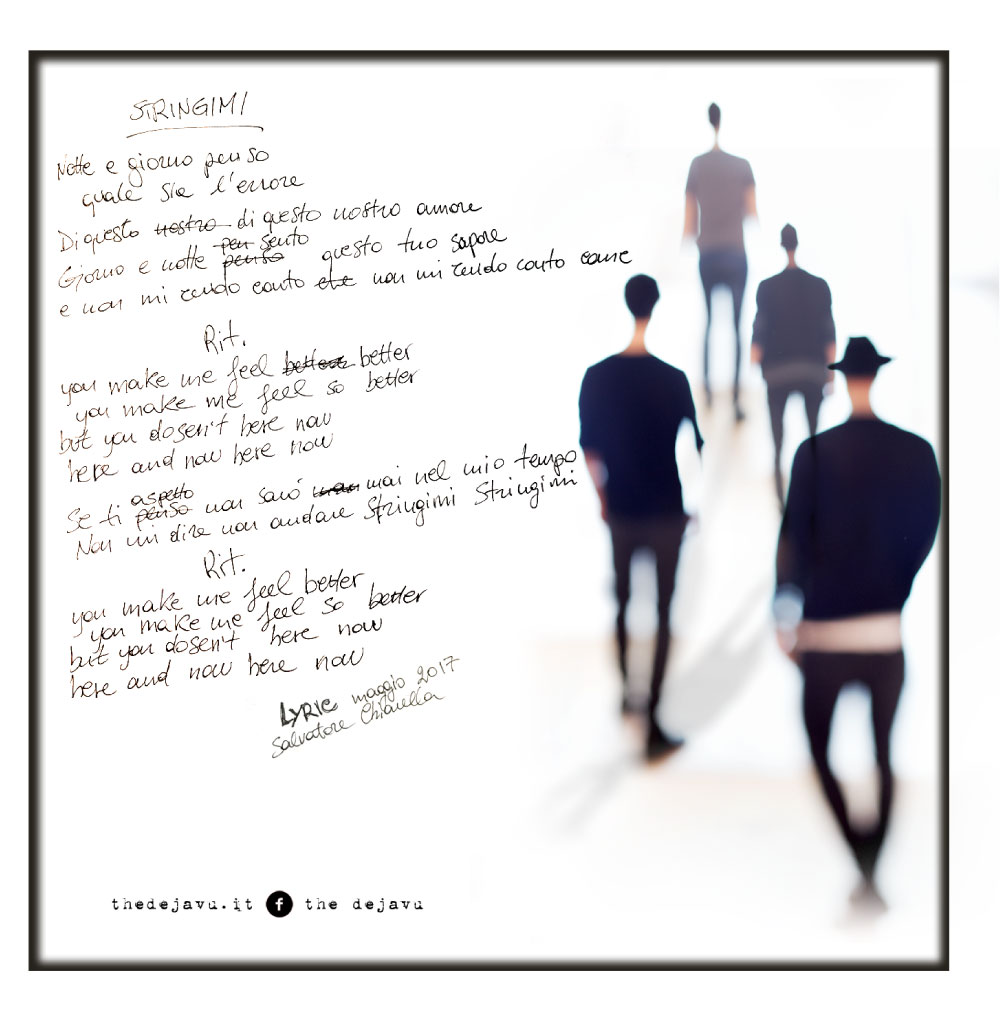 STRINGIMI
Notte e giorno penso
quale sia l'errore
Di questo nostro di questo nostro amore
pen sento
Giorno e notte penso questo tuo sapore
e non mi rendo conto che non mi rendo conto come
Rit.
you make me feel better better
you make me feel so better
but you dosen't here now
here and now here now
aspetto
Se ti penso non sarò non mai nel mio tempo
Non mi dire non andare Stringimi Stringimi
Rit.
you make me feel better
you make me feel so better
but you dosen't here now
here and now here now
LYRIC maggio 2017
Salvatore Chiarella
thedejavu.it f the dejavu